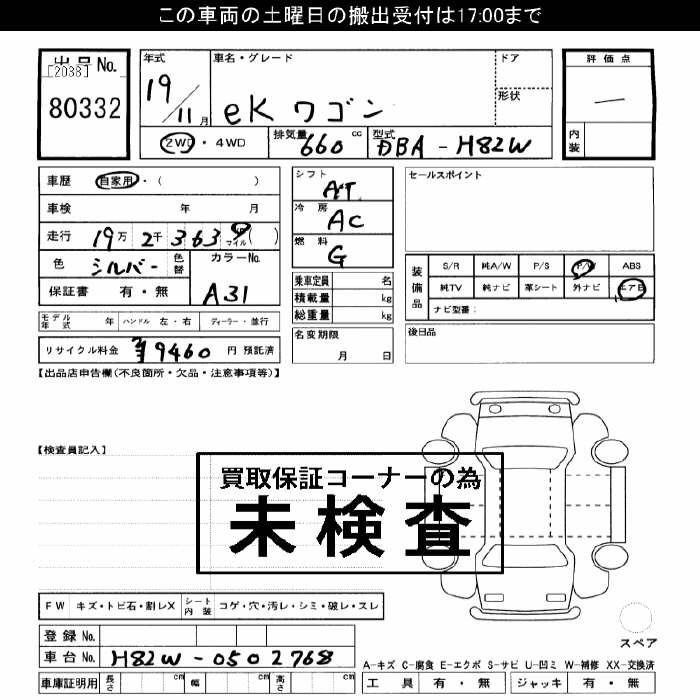 この車両の土曜日の搬出受付は17:00まで
出品No.
[2038]
80332
年式 車名・グレード ドア 評価点
19/11月 eK ワゴン 形状 —
2WD・4WD 排気量 660 cc 型式 DBA - H82W 内装
車歴 自家用・( )
シフト AT
セールスポイント
車検 年 月
冷房 AC
走行 19万 2千 3639 マイル( )
燃料 G
色 シルバー 色替 カラーNo. A31
保証書 有・無
乗車定員 名
積載量 kg
総重量 kg
装備品 S/R 純A/W P/S P/W ABS
純TV 純ナビ 革シート 外ナビ エアB
ナビ型番:
モデル年式 年 ハンドル 左・右 ディーラー・並行
名変期限 月 日
後日品
リサイクル料金 ¥9460 円 預託済
【出品店申告欄(不良箇所・欠品・注意事項等)】
【検査員記入】
買取保証コーナーの為
未検査
FW キズ・トビ石・割レX シート内装 コゲ・穴・汚レ・シミ・破レ・スレ
登録No.
スペア
車台No. H82W-0502768
A-キズ C-腐食 E-エクボ S-サビ U-凹ミ W-補修 XX-交換済
車庫証明用 長さ cm 幅 cm 高さ cm
工具 有・無 ジャッキ 有・無